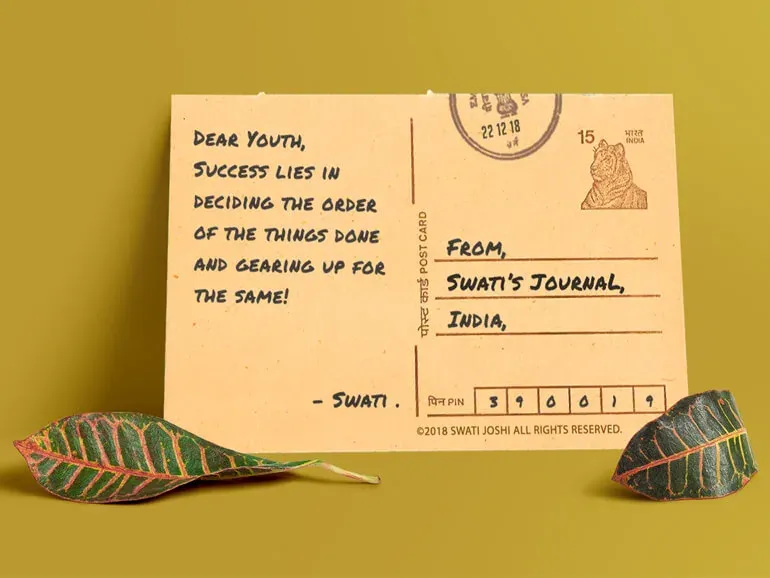 DEAR YOUTH,
SUCCESS LIES IN
DECIDING THE ORDER
OF THE THINGS DONE
AND GEARING UP FOR
THE SAME!
- SWATI .
पोस्ट कार्ड POST CARD
22 12 18
15
भारत
INDIA
FROM,
SWATI'S JOURNAL,
INDIA,
पिन PIN 3 9 0 0 1 9
©2018 SWATI JOSHI ALL RIGHTS RESERVED.